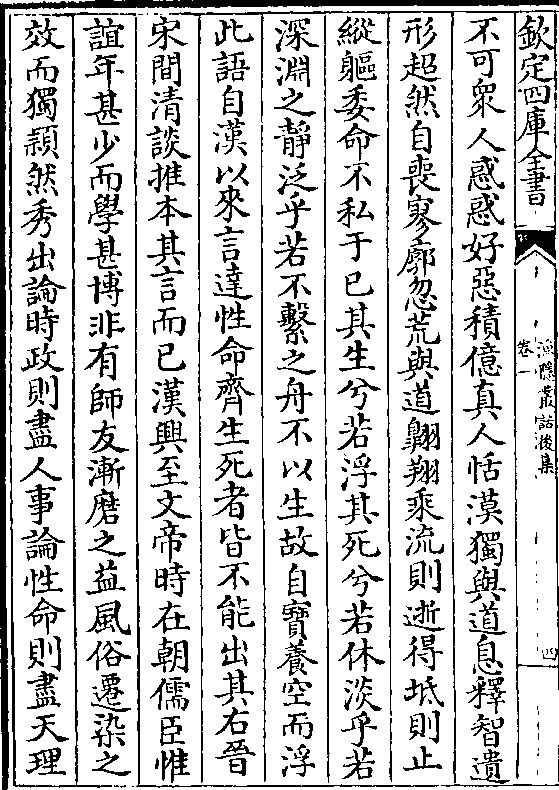 欽定四庫全書
漁隱叢話後集
卷一
四
不可衆人惑惑好惡積億真人恬漠獨與道息釋智遺
形超然自喪寥廓忽荒與道翺翔乘流則逝得坻則止
縱軀委命不私于已其生兮若浮其死兮若休淡乎若
深淵之静泛乎若不繫之舟不以生故自寳養空而浮
此語自漢以來言達性命齊生死者皆不能出其右晉
宋間清談推本其言而已漢興至文帝時在朝儒臣惟
誼年甚少而學甚博非有師友漸磨之益風俗遷染之
效而獨頴然秀出論時政則盡人事論性命則盡天理